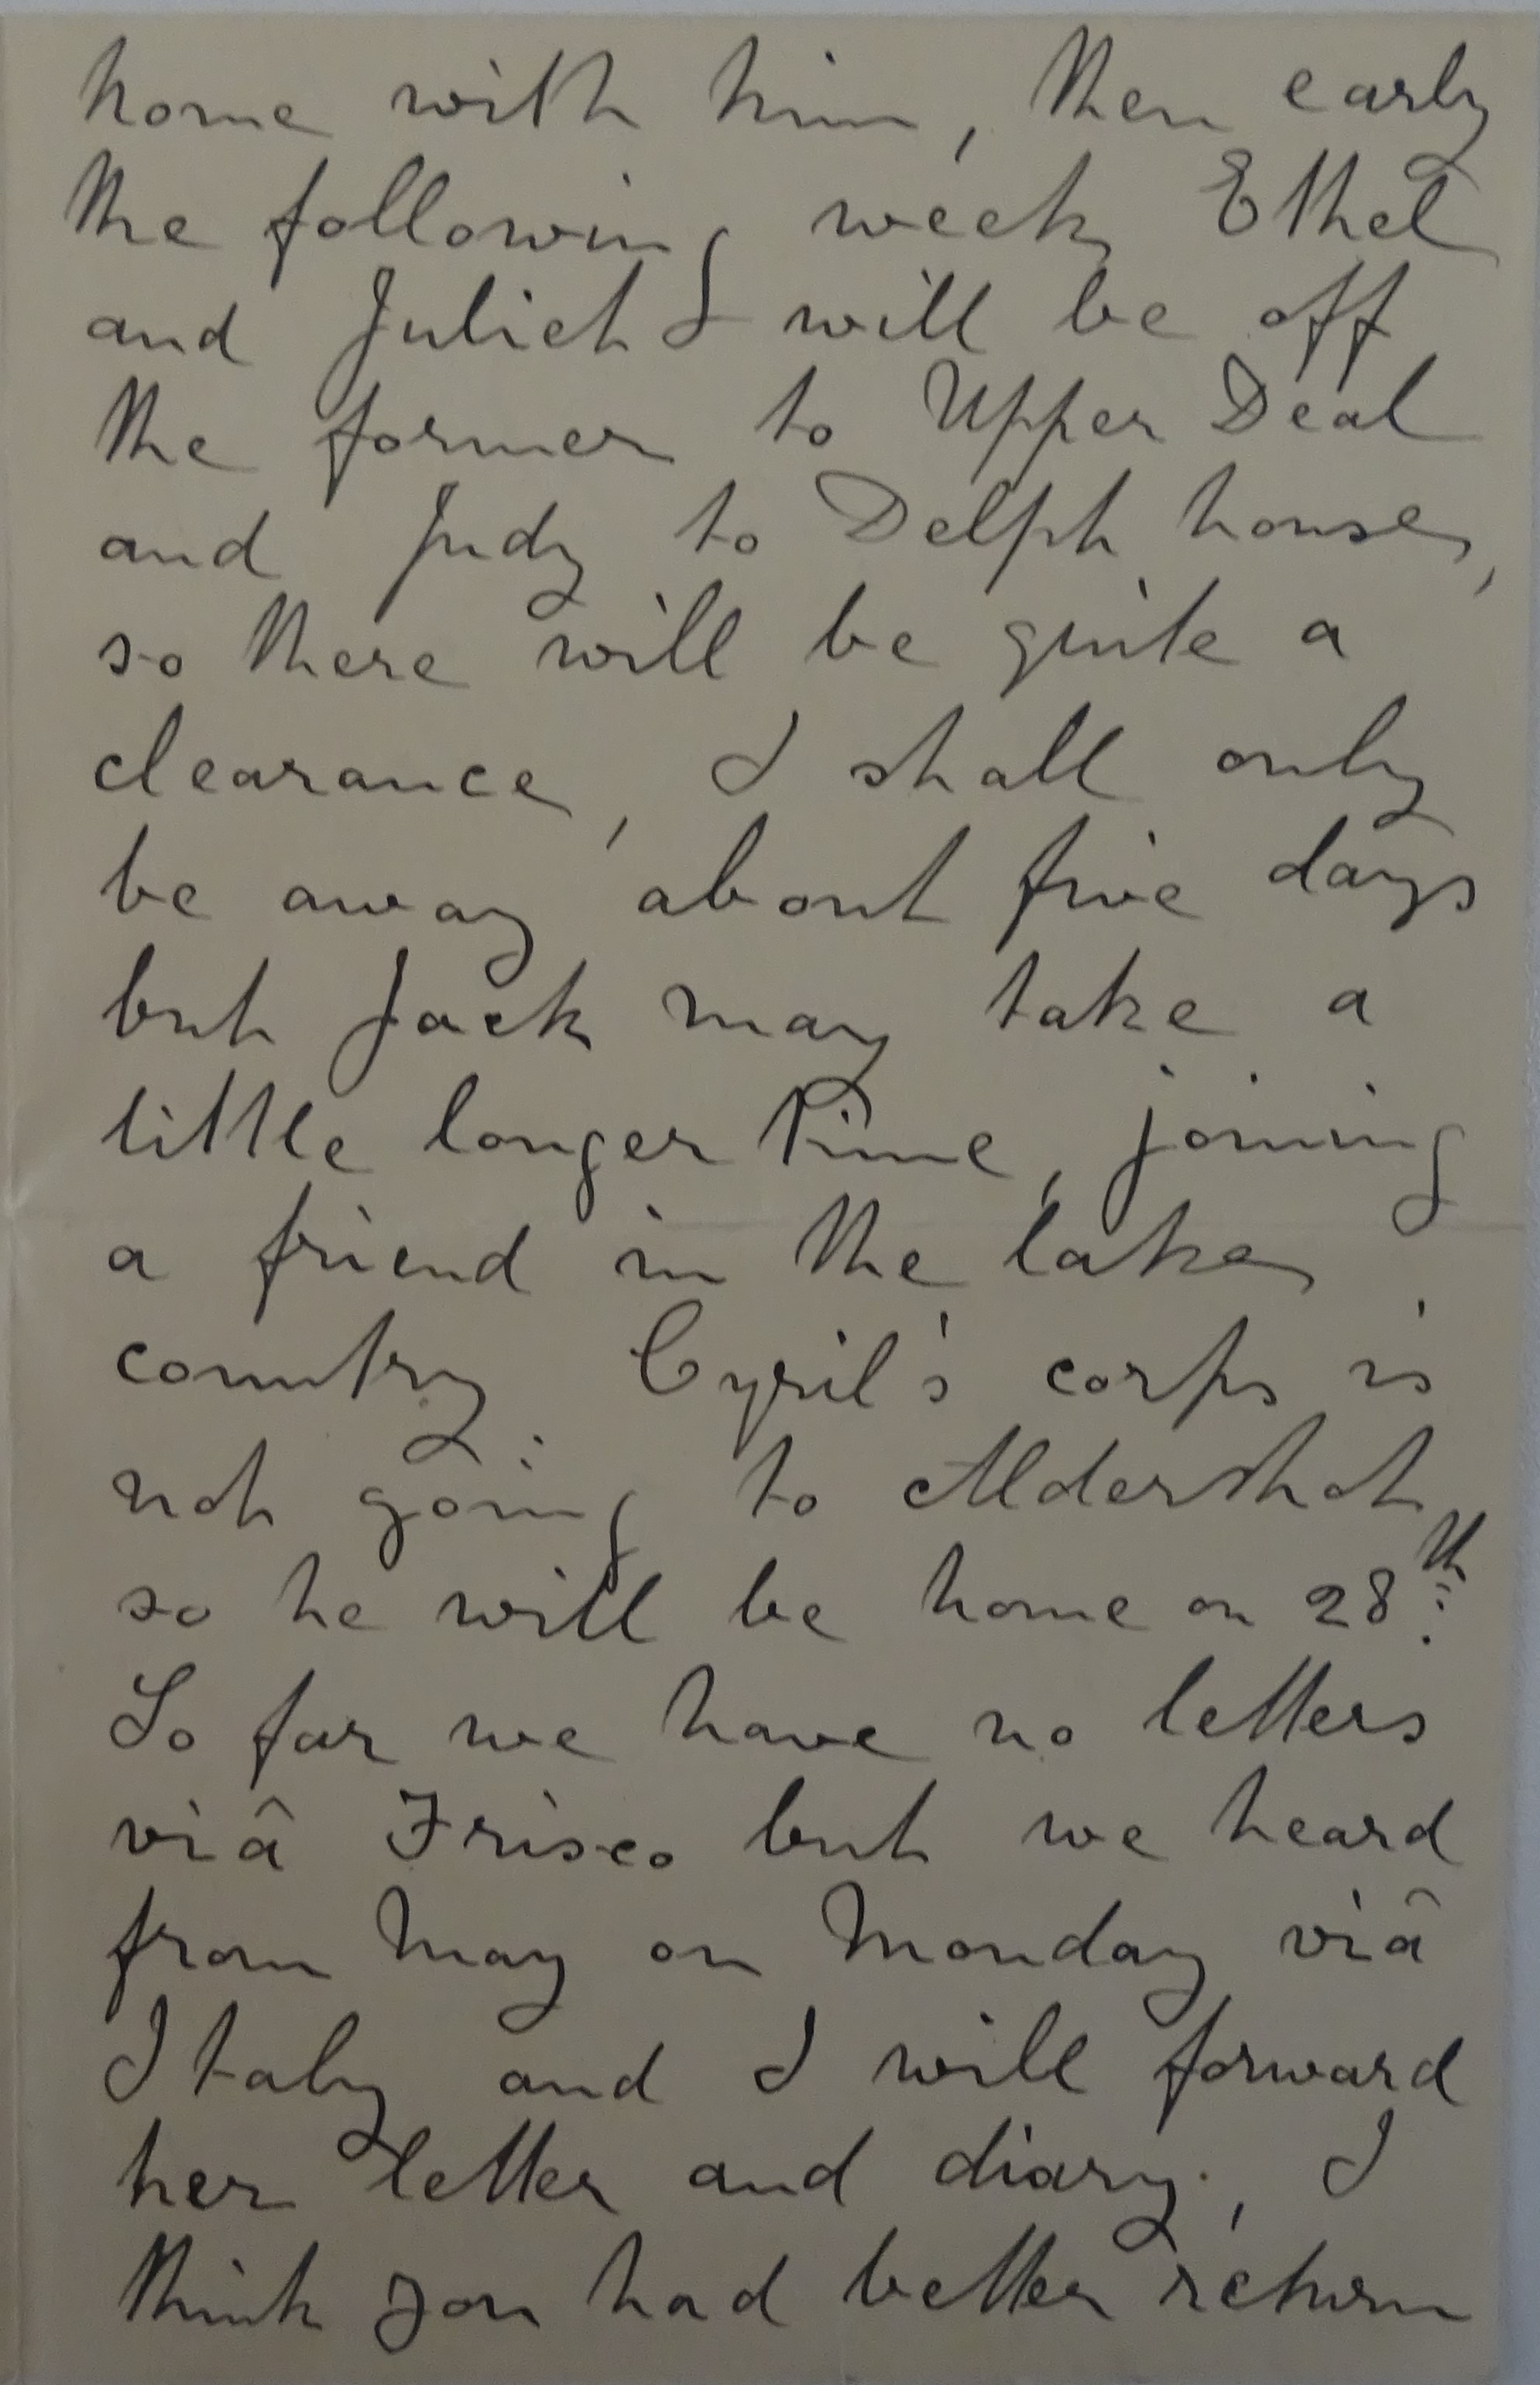 home with him, then early
the following week Ethel
and Juliet will be off
the former to Upper Deal
and Judy to Delph house,
so there will be quite a
clearance, I shall only
be away about five days
but Jack may take a
little longer time, joining
a friend in the lake
country. Cyril's corps is
not going to Aldershot
so he will be home on 28th.
So far we have no letters
viâ Frisco but we heard
from May on Monday viâ
Italy and I will forward
her letter and diary, I
think you had better return